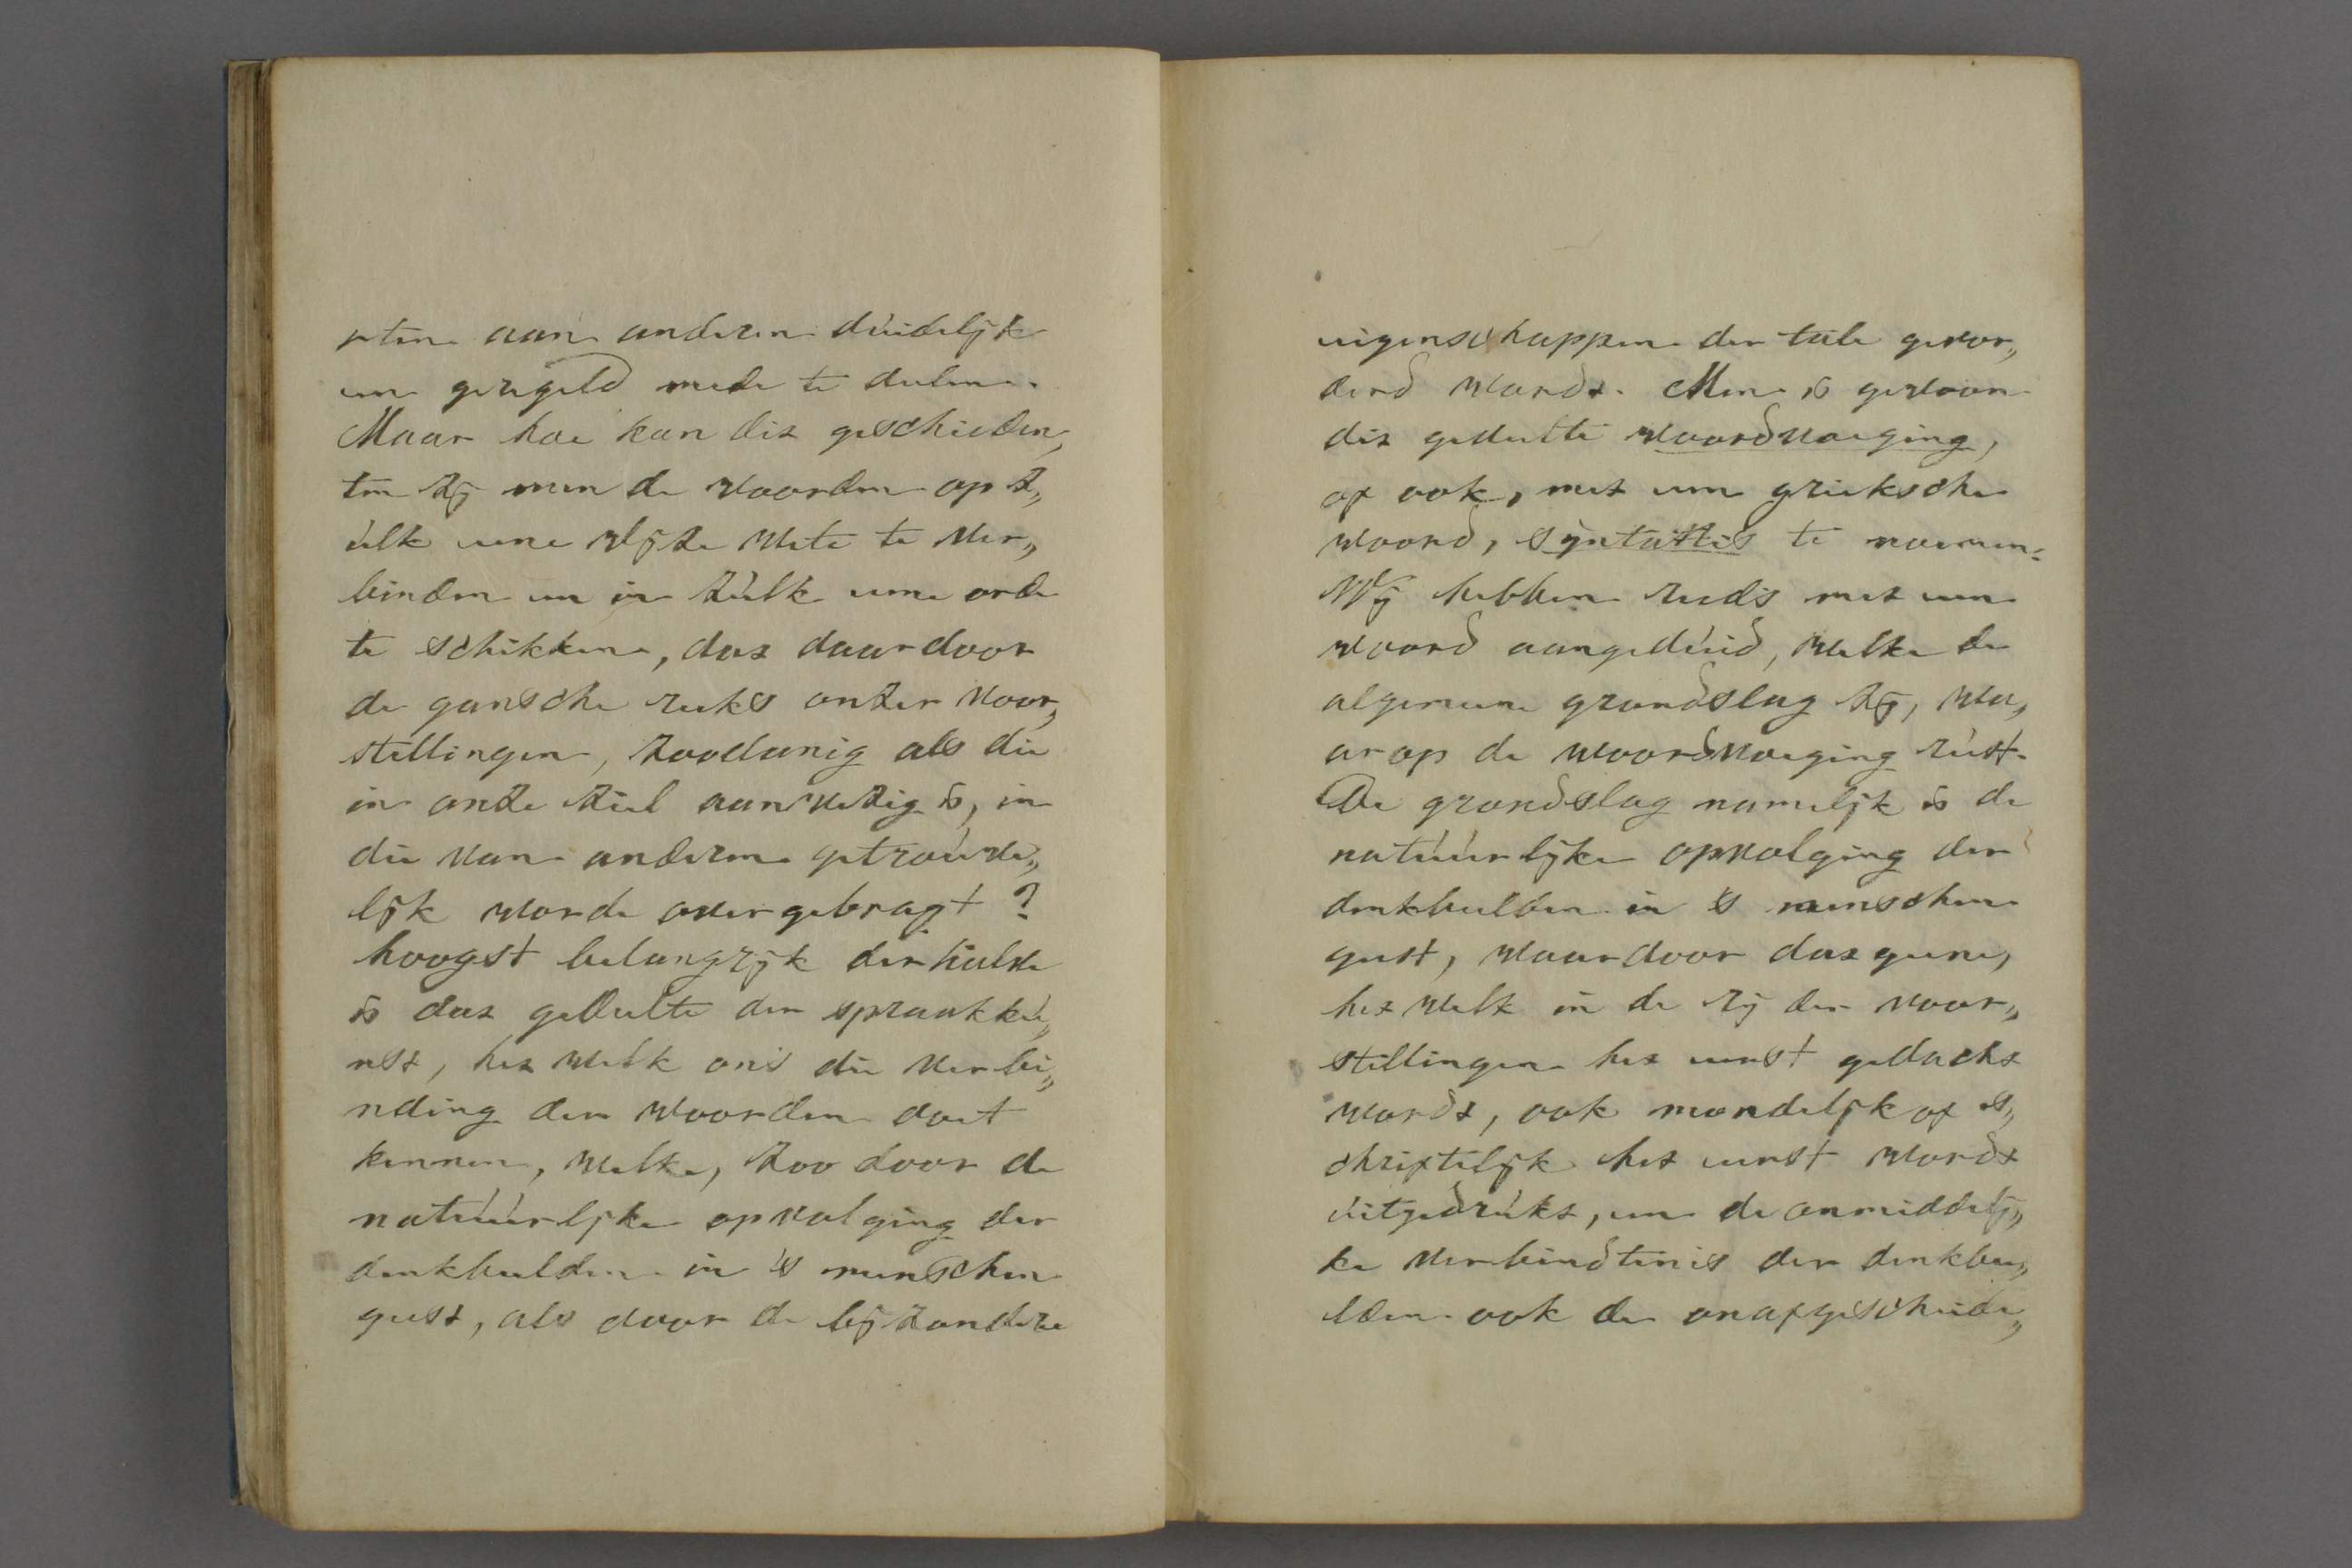 pten aan anderen duidelijk
en geregeld mede te deelen.
Maar hoe kan dit geschieden,
ten zij men de woorden op z„
ulk eene wijze wete te ver„
binden en in zulk eene orde
te schikken, dat daardoor
de gansche reeks onzer voor„
stellingen, zoodanig als die
in onze ziel aanwezig is, in
die van anderen getrouwe„
lijk worde overgebragt?
hoogst belangrijk derhalve
is dat gedeelte der spraakku„
nst, het welk ons die verbi„
nding der woorden doet
kennen, welke, zoo door de
natuurlijke opvolging der
denkbeelden in 's menschen
geest, als door de bijzondere
eigenschappen der tale gevor„
derd wordt. Men is gewoon
dit gedeelte woordvoeging,
of ook, met een grieksche
woord, syntaxis te noemen.
Wij hebben reeds met een
woord aangeduid, welke de
algemeene grondslag zij, wa„
arop de woordvoeging rust.
De grondslag namelijk is de
natuurlijke opvolging der
denkbeelden in 's menschen
geest, waardoor datgene,
het welk in de rij der voor„
stellingen het eerst gedacht
wordt, ook mondelijk of s„
chriftelijk het eerst wordt
uitgedrukt, en de onmiddelij„
ke verbindtenis der denkbee„
lden ook de onafgescheide„